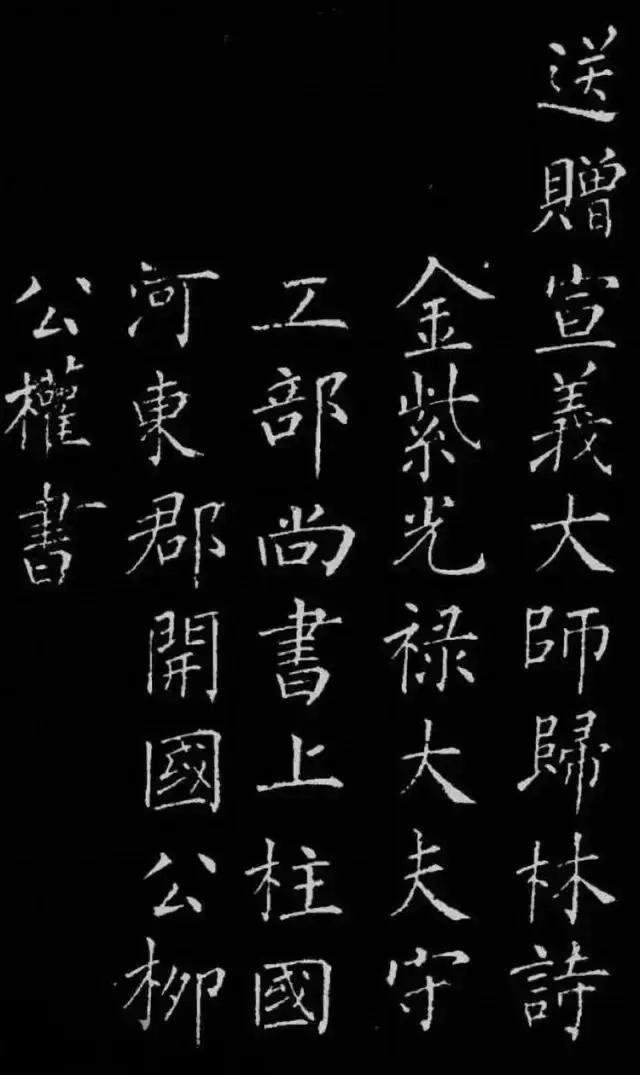 送贈宣義大師歸林詩
金紫光祿大夫守
工部尚書上柱國
河東郡開國公柳
公權書